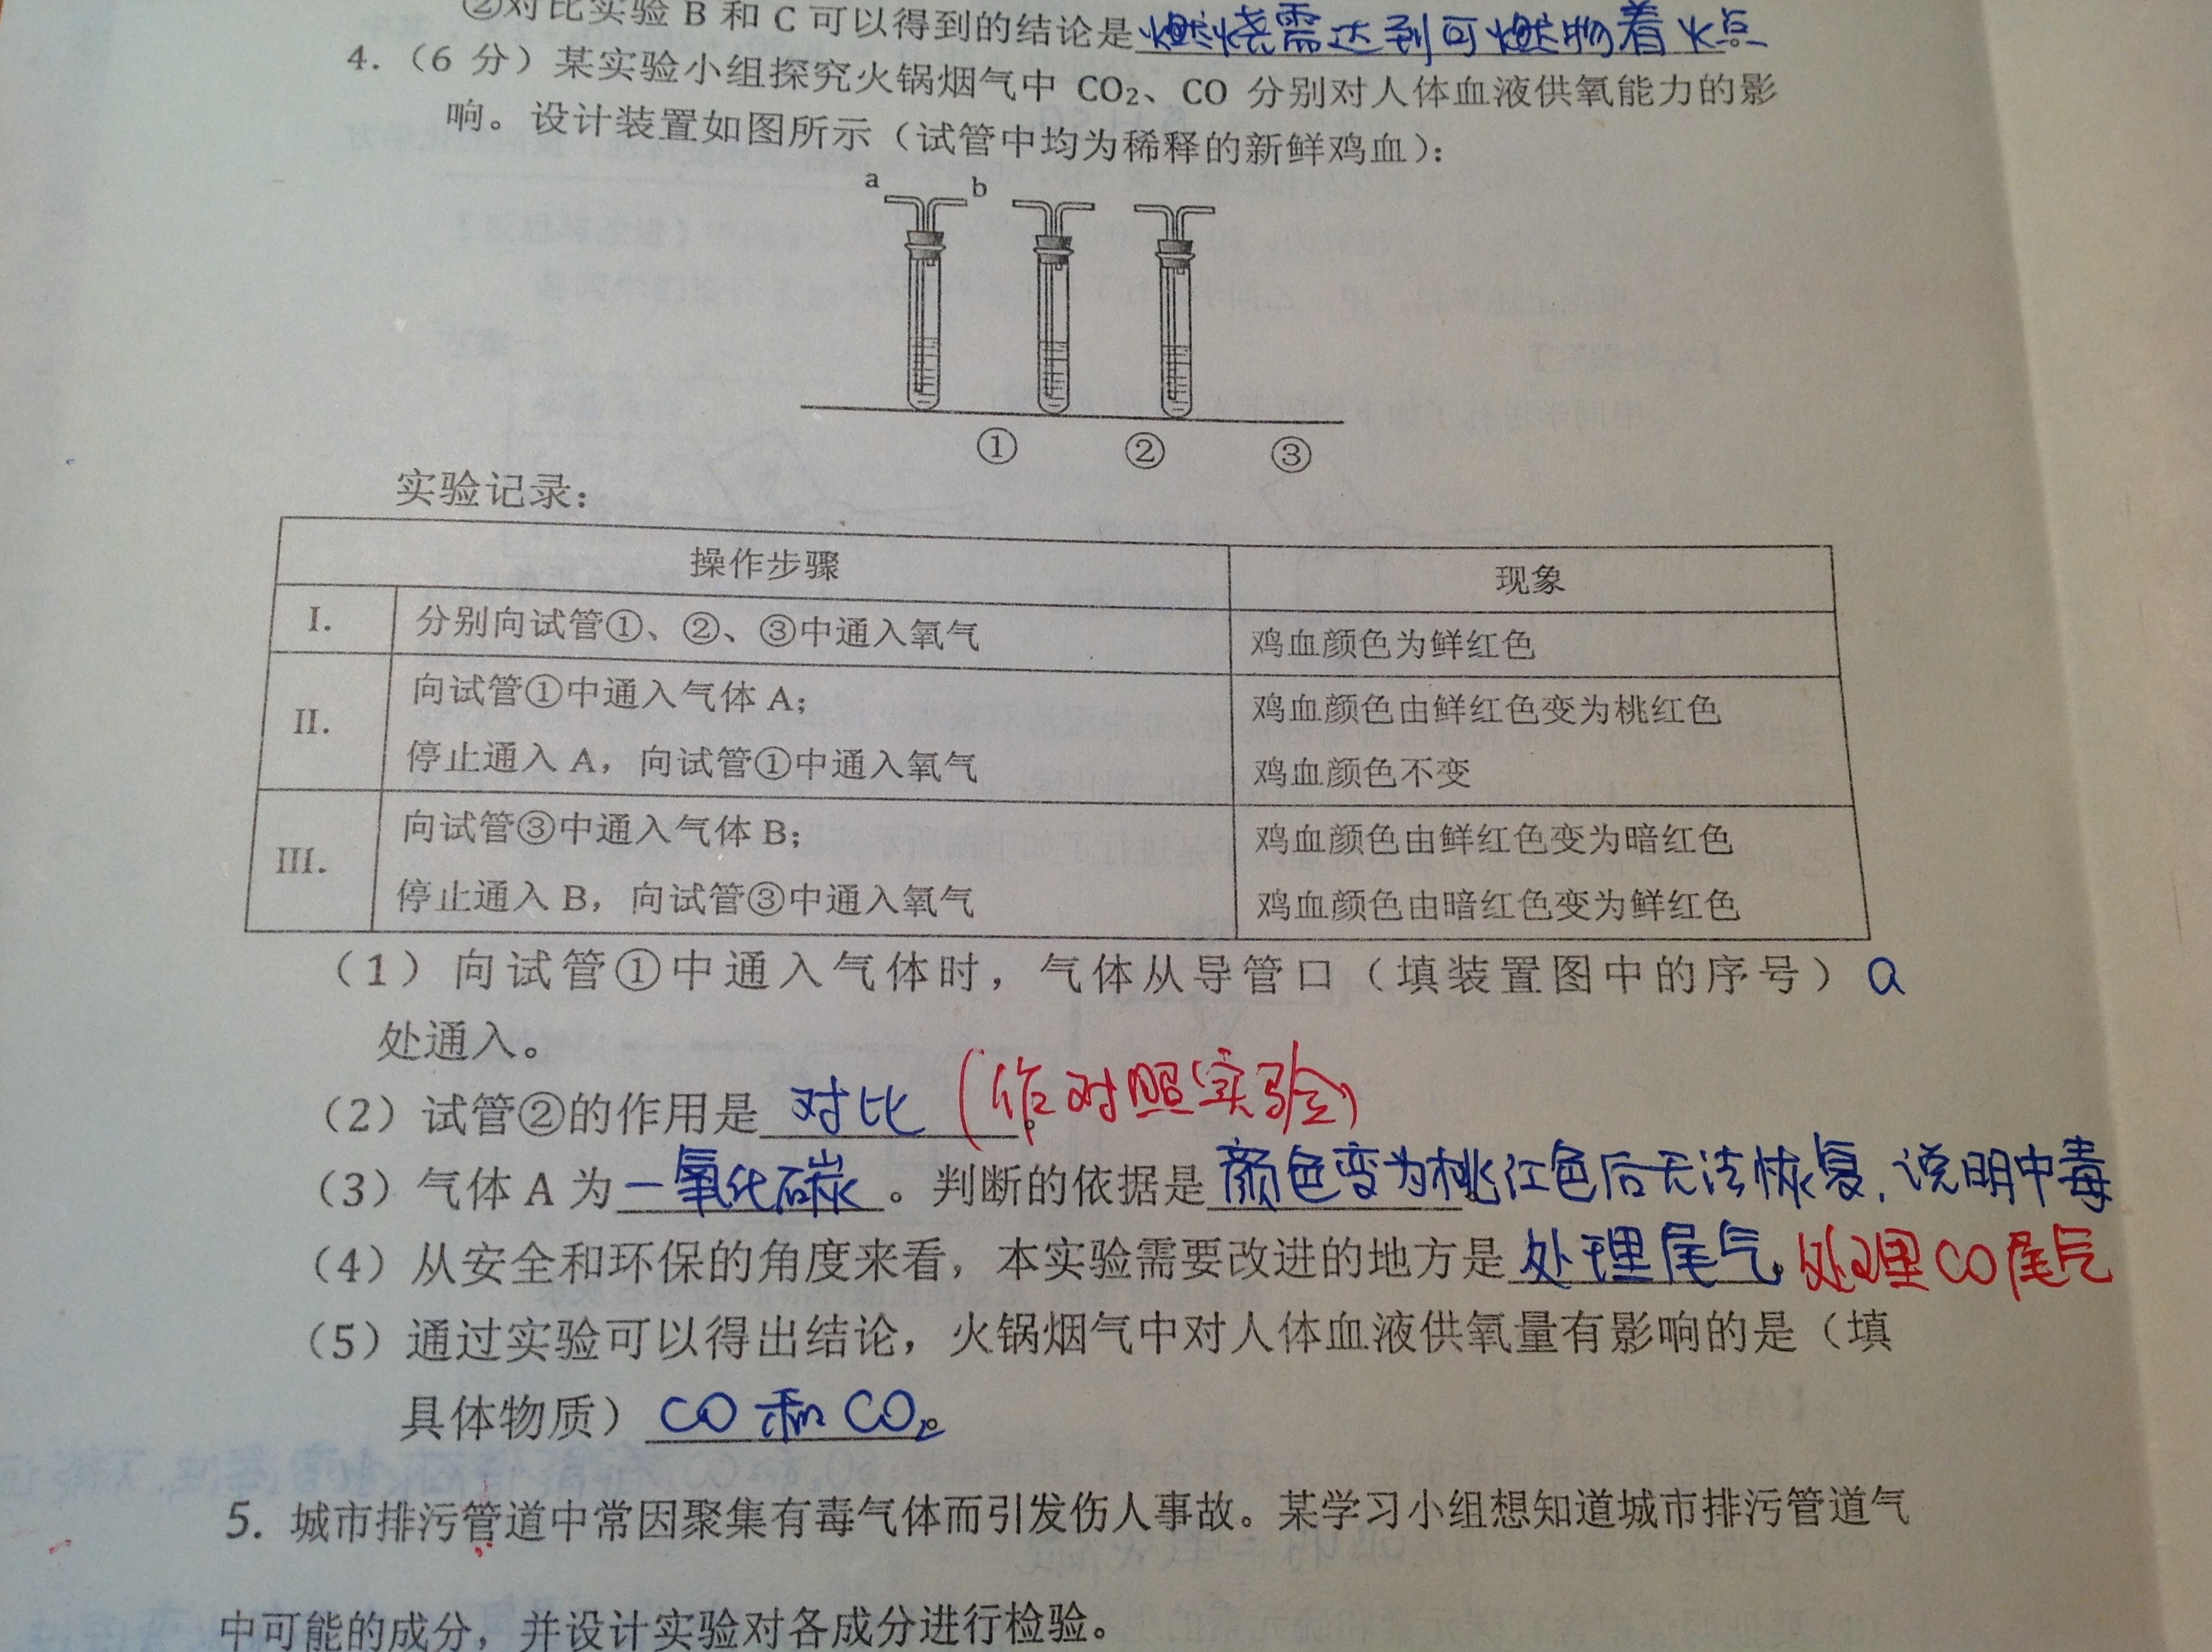 ②对比实验 B 和 C 可以得到的结论是燃烧需达到可燃物着火点
4.（6 分）某实验小组探究火锅烟气中 CO₂、CO 分别对人体血液供氧能力的影
响。设计装置如图所示（试管中均为稀释的新鲜鸡血）：
a b
① ② ③
实验记录：
操作步骤 现象
I. 分别向试管①、②、③中通入氧气 鸡血颜色为鲜红色
II. 向试管①中通入气体 A； 鸡血颜色由鲜红色变为桃红色
停止通入 A，向试管①中通入氧气 鸡血颜色不变
III. 向试管③中通入气体 B； 鸡血颜色由鲜红色变为暗红色
停止通入 B，向试管③中通入氧气 鸡血颜色由暗红色变为鲜红色
（1）向试管①中通入气体时，气体从导管口（填装置图中的序号）a
处通入。
（2）试管②的作用是 对比 。(作对照实验)
（3）气体 A 为一氧化碳。判断的依据是颜色变为桃红色后无法恢复，说明中毒
（4）从安全和环保的角度来看，本实验需要改进的地方是 处理尾气。处理CO尾气
（5）通过实验可以得出结论，火锅烟气中对人体血液供氧量有影响的是（填
具体物质） CO 和 CO₂。
5. 城市排污管道中常因聚集有毒气体而引发伤人事故。某学习小组想知道城市排污管道气
中可能的成分，并设计实验对各成分进行检验。